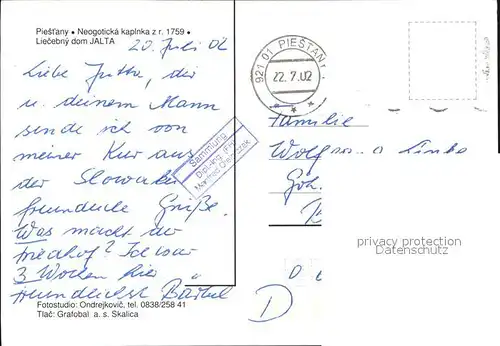 Piešťany • Neogotická kaplnka z r. 1759 •
Liečebný dom JALTA
20. Juli 02
Liebe Jutta, dir
u. deinem Mann
sende ich von
meiner Kur aus
der Slowakei
freundliche Grüße.
Was macht der
Friedhof? Ich war
3 Wochen hier
freundlichst Bärbel
Fotostudio: Ondrejkovič, tel. 0838/258 41
Tlač: Grafobal a. s. Skalica
Sammlung
Dipl.-Ing. (FH)
Manfred
921 01 PIEŠŤANY 1
22.7.02
Familie
Wolf
privacy protection
Datenschutz
D